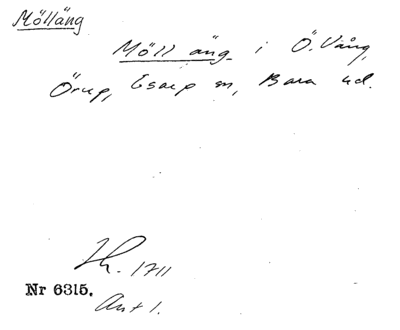 Mölläng
Möll äng i Ö. Vång,
Örup, Esarp sn, Bara hd.
Lh. 1711
Nr 6315.
Ant 1.